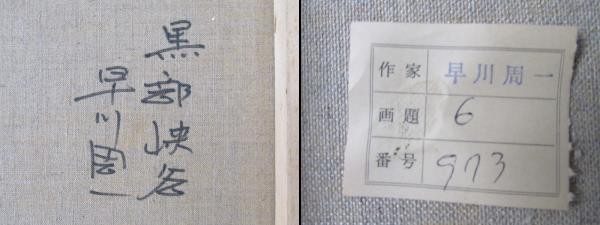 黒部峡谷
早川周一
作家 早川周一
画題 6
番号 973